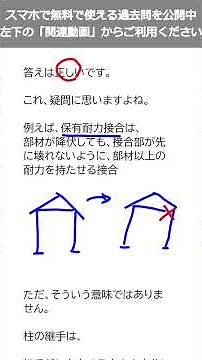 スマホで無料で使える過去問を公開中
左下の「関連動画」からご利用ください
答えは正しいです。
これ、疑問に思いますよね。
例えば、保有耐力接合は、
部材が降伏しても、接合部が先
に壊れないように、部材以上の
耐力を持たせる接合
ただ、そういう意味ではありま
せん。
柱の継手は、